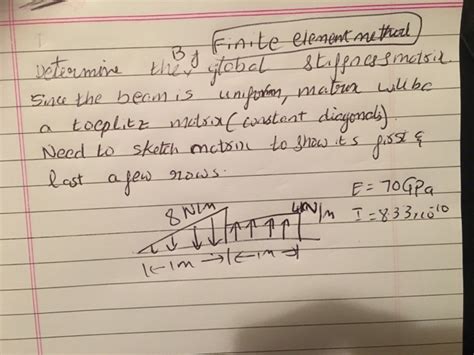 By Finite element method
Determine the global stiffness matrix.
Since the beam is uniform, matrix will be
a toeplitz matrix (constant diagonals).
Need to sketch matrix to show its first &
last a few rows.
E = 70GPa
8 N/m
4N/m
I = 833x10^-10
|← 1m →|← 1m →|